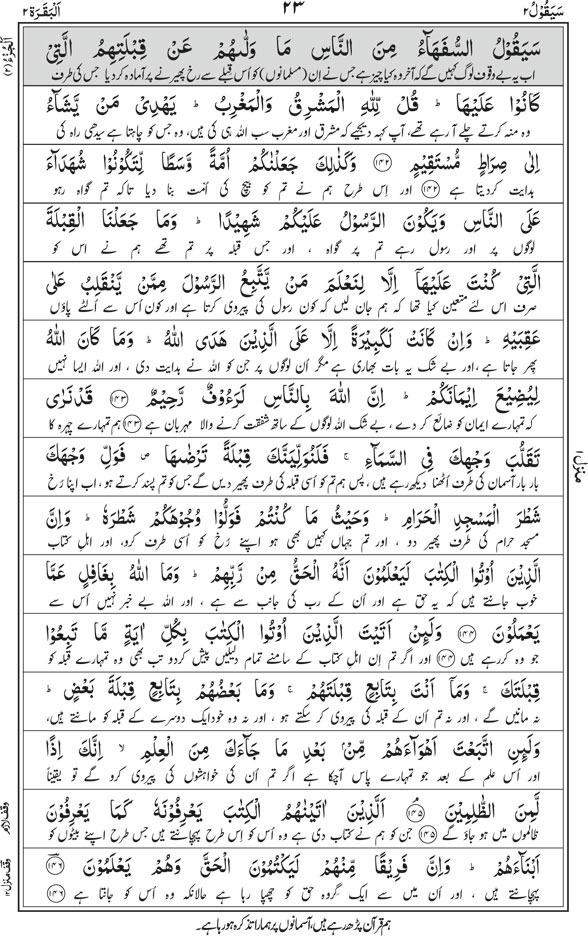 سَيَقُوْلُ ٢
٢٣
اَلْبَقَرَة ٢
اَلْجُزْءُ (٢)
سَيَقُوْلُ السُّفَهَآءُ مِنَ النَّاسِ مَا وَلّٰىهُمْ عَنْ قِبْلَتِهِمُ الَّتِيْ
اب یہ بے وقوف لوگ کہیں گے کہ آخر وہ کیا چیز ہے جس نے اِن (مسلمانوں) کو اُس قبلے سے رخ پھیرنے پر آمادہ کردیا جس کی طرف
كَانُوْا عَلَيْهَا ؕ قُلْ لِّلّٰهِ الْمَشْرِقُ وَالْمَغْرِبُ ؕ يَهْدِيْ مَنْ يَّشَآءُ
وہ منہ کرتے چلے آرہے تھے، آپ کہہ دیجیے کہ مشرق اور مغرب سب اللہ ہی کی ہیں، وہ جس کو چاہتا ہے سیدھی راہ کی
اِلٰى صِرَاطٍ مُّسْتَقِيْمٍ ﴿١٤٢﴾ وَكَذٰلِكَ جَعَلْنٰكُمْ اُمَّةً وَّسَطًا لِّتَكُوْنُوْا شُهَدَآءَ
ہدایت کردیتا ہے ﴿١٤٢﴾ اور اِس طرح ہم نے تم کو بیچ کی اُمّت بنا دیا تاکہ تم گواہ رہو
عَلَى النَّاسِ وَيَكُوْنَ الرَّسُوْلُ عَلَيْكُمْ شَهِيْدًا ؕ وَمَا جَعَلْنَا الْقِبْلَةَ
لوگوں پر اور رسول رہے تم پر گواہ ، اور جس قبلہ پر تم تھے ہم نے اس کو
الَّتِيْ كُنْتَ عَلَيْهَآ اِلَّا لِنَعْلَمَ مَنْ يَّتَّبِعُ الرَّسُوْلَ مِمَّنْ يَّنْقَلِبُ عَلٰى
صرف اس لئے متعین کیا تھا کہ ہم جان لیں کہ کون رسول کی پیروی کرتا ہے اور کون اُس سے اُلٹے پاؤں
عَقِبَيْهِ ؕ وَاِنْ كَانَتْ لَكَبِيْرَةً اِلَّا عَلَى الَّذِيْنَ هَدَى اللّٰهُ ؕ وَمَا كَانَ اللّٰهُ
پھر جاتا ہے، اور بے شک یہ بات بھاری ہے مگر اُن لوگوں پر جن کو اللہ نے ہدایت دی ، اور اللہ ایسا نہیں
لِيُضِيْعَ اِيْمَانَكُمْ ؕ اِنَّ اللّٰهَ بِالنَّاسِ لَرَءُوْفٌ رَّحِيْمٌ ﴿١٤٣﴾ قَدْ نَرٰى
کہ تمہارے ایمان کو ضائع کر دے ، بے شک اللہ لوگوں کے ساتھ شفقت کرنے والا مہربان ہے ﴿١٤٣﴾ ہم تمہارے چہرہ کا
تَقَلُّبَ وَجْهِكَ فِي السَّمَآءِ ۚ فَلَنُوَلِّيَنَّكَ قِبْلَةً تَرْضٰىهَا ۪ فَوَلِّ وَجْهَكَ
بار بار آسمان کی طرف اُٹھنا دیکھ رہے ہیں، پس ہم تم کو اُسی قبلہ کی طرف پھیر دیں گے جس کو تم پسند کرتے ہو، اب اپنا رخ
شَطْرَ الْمَسْجِدِ الْحَرَامِ ؕ وَحَيْثُ مَا كُنْتُمْ فَوَلُّوْا وُجُوْهَكُمْ شَطْرَهٗ ؕ وَاِنَّ
مسجد حرام کی طرف پھیر دو ، اور تم جہاں کہیں بھی ہو اپنے رخ کو اُسی طرف کرو، اور اہلِ کتاب
الَّذِيْنَ اُوْتُوا الْكِتٰبَ لَيَعْلَمُوْنَ اَنَّهُ الْحَقُّ مِنْ رَّبِّهِمْ ؕ وَمَا اللّٰهُ بِغَافِلٍ عَمَّا
خوب جانتے ہیں کہ یہ حق ہے اور اُن کے رب کی جانب سے ہے ، اور اللہ بے خبر نہیں اُس سے
يَعْمَلُوْنَ ﴿١٤٤﴾ وَلَئِنْ اَتَيْتَ الَّذِيْنَ اُوْتُوا الْكِتٰبَ بِكُلِّ اٰيَةٍ مَّا تَبِعُوْا
جو وہ کررہے ہیں ﴿١٤٤﴾ اور اگر تم اِن اہلِ کتاب کے سامنے تمام دلیلیں پیش کردو تب بھی وہ تمہارے قبلہ کو
قِبْلَتَكَ ۚ وَمَآ اَنْتَ بِتَابِعٍ قِبْلَتَهُمْ ۚ وَمَا بَعْضُهُمْ بِتَابِعٍ قِبْلَةَ بَعْضٍ ؕ
نہ مانیں گے ، اور نہ تم اُن کے قبلہ کی پیروی کر سکتے ہو ، اور نہ وہ خود ایک دوسرے کے قبلہ کو مانتے ہیں،
وَلَئِنِ اتَّبَعْتَ اَهْوَآءَهُمْ مِّنْۢ بَعْدِ مَا جَآءَكَ مِنَ الْعِلْمِ ۙ اِنَّكَ اِذًا
اور اس علم کے بعد جو تمہارے پاس آچکا ہے اگر تم اُن کی خواہشوں کی پیروی کرو گے تو یقیناً
لَّمِنَ الظّٰلِمِيْنَ ﴿١٤٥﴾ اَلَّذِيْنَ اٰتَيْنٰهُمُ الْكِتٰبَ يَعْرِفُوْنَهٗ كَمَا يَعْرِفُوْنَ
ظالموں میں ہو جاؤ گے ﴿١٤٥﴾ جن کو ہم نے کتاب دی ہے وہ اُس کو اِس طرح پہچانتے ہیں جس طرح اپنے بیٹوں کو
اَبْنَآءَهُمْ ؕ وَاِنَّ فَرِيْقًا مِّنْهُمْ لَيَكْتُمُوْنَ الْحَقَّ وَهُمْ يَعْلَمُوْنَ ﴿١٤٦﴾
پہچانتے ہیں ، اور اُن میں سے ایک گروہ حق کو چھپا رہا ہے حالانکہ وہ اُس کو جانتا ہے ﴿١٤٦﴾
منزل ١
وقف لازم
وقف منزل ١٢
ہم قرآن پڑھ رہے ہیں، آسمانوں پر ہمارا تذکرہ ہورہا ہے۔